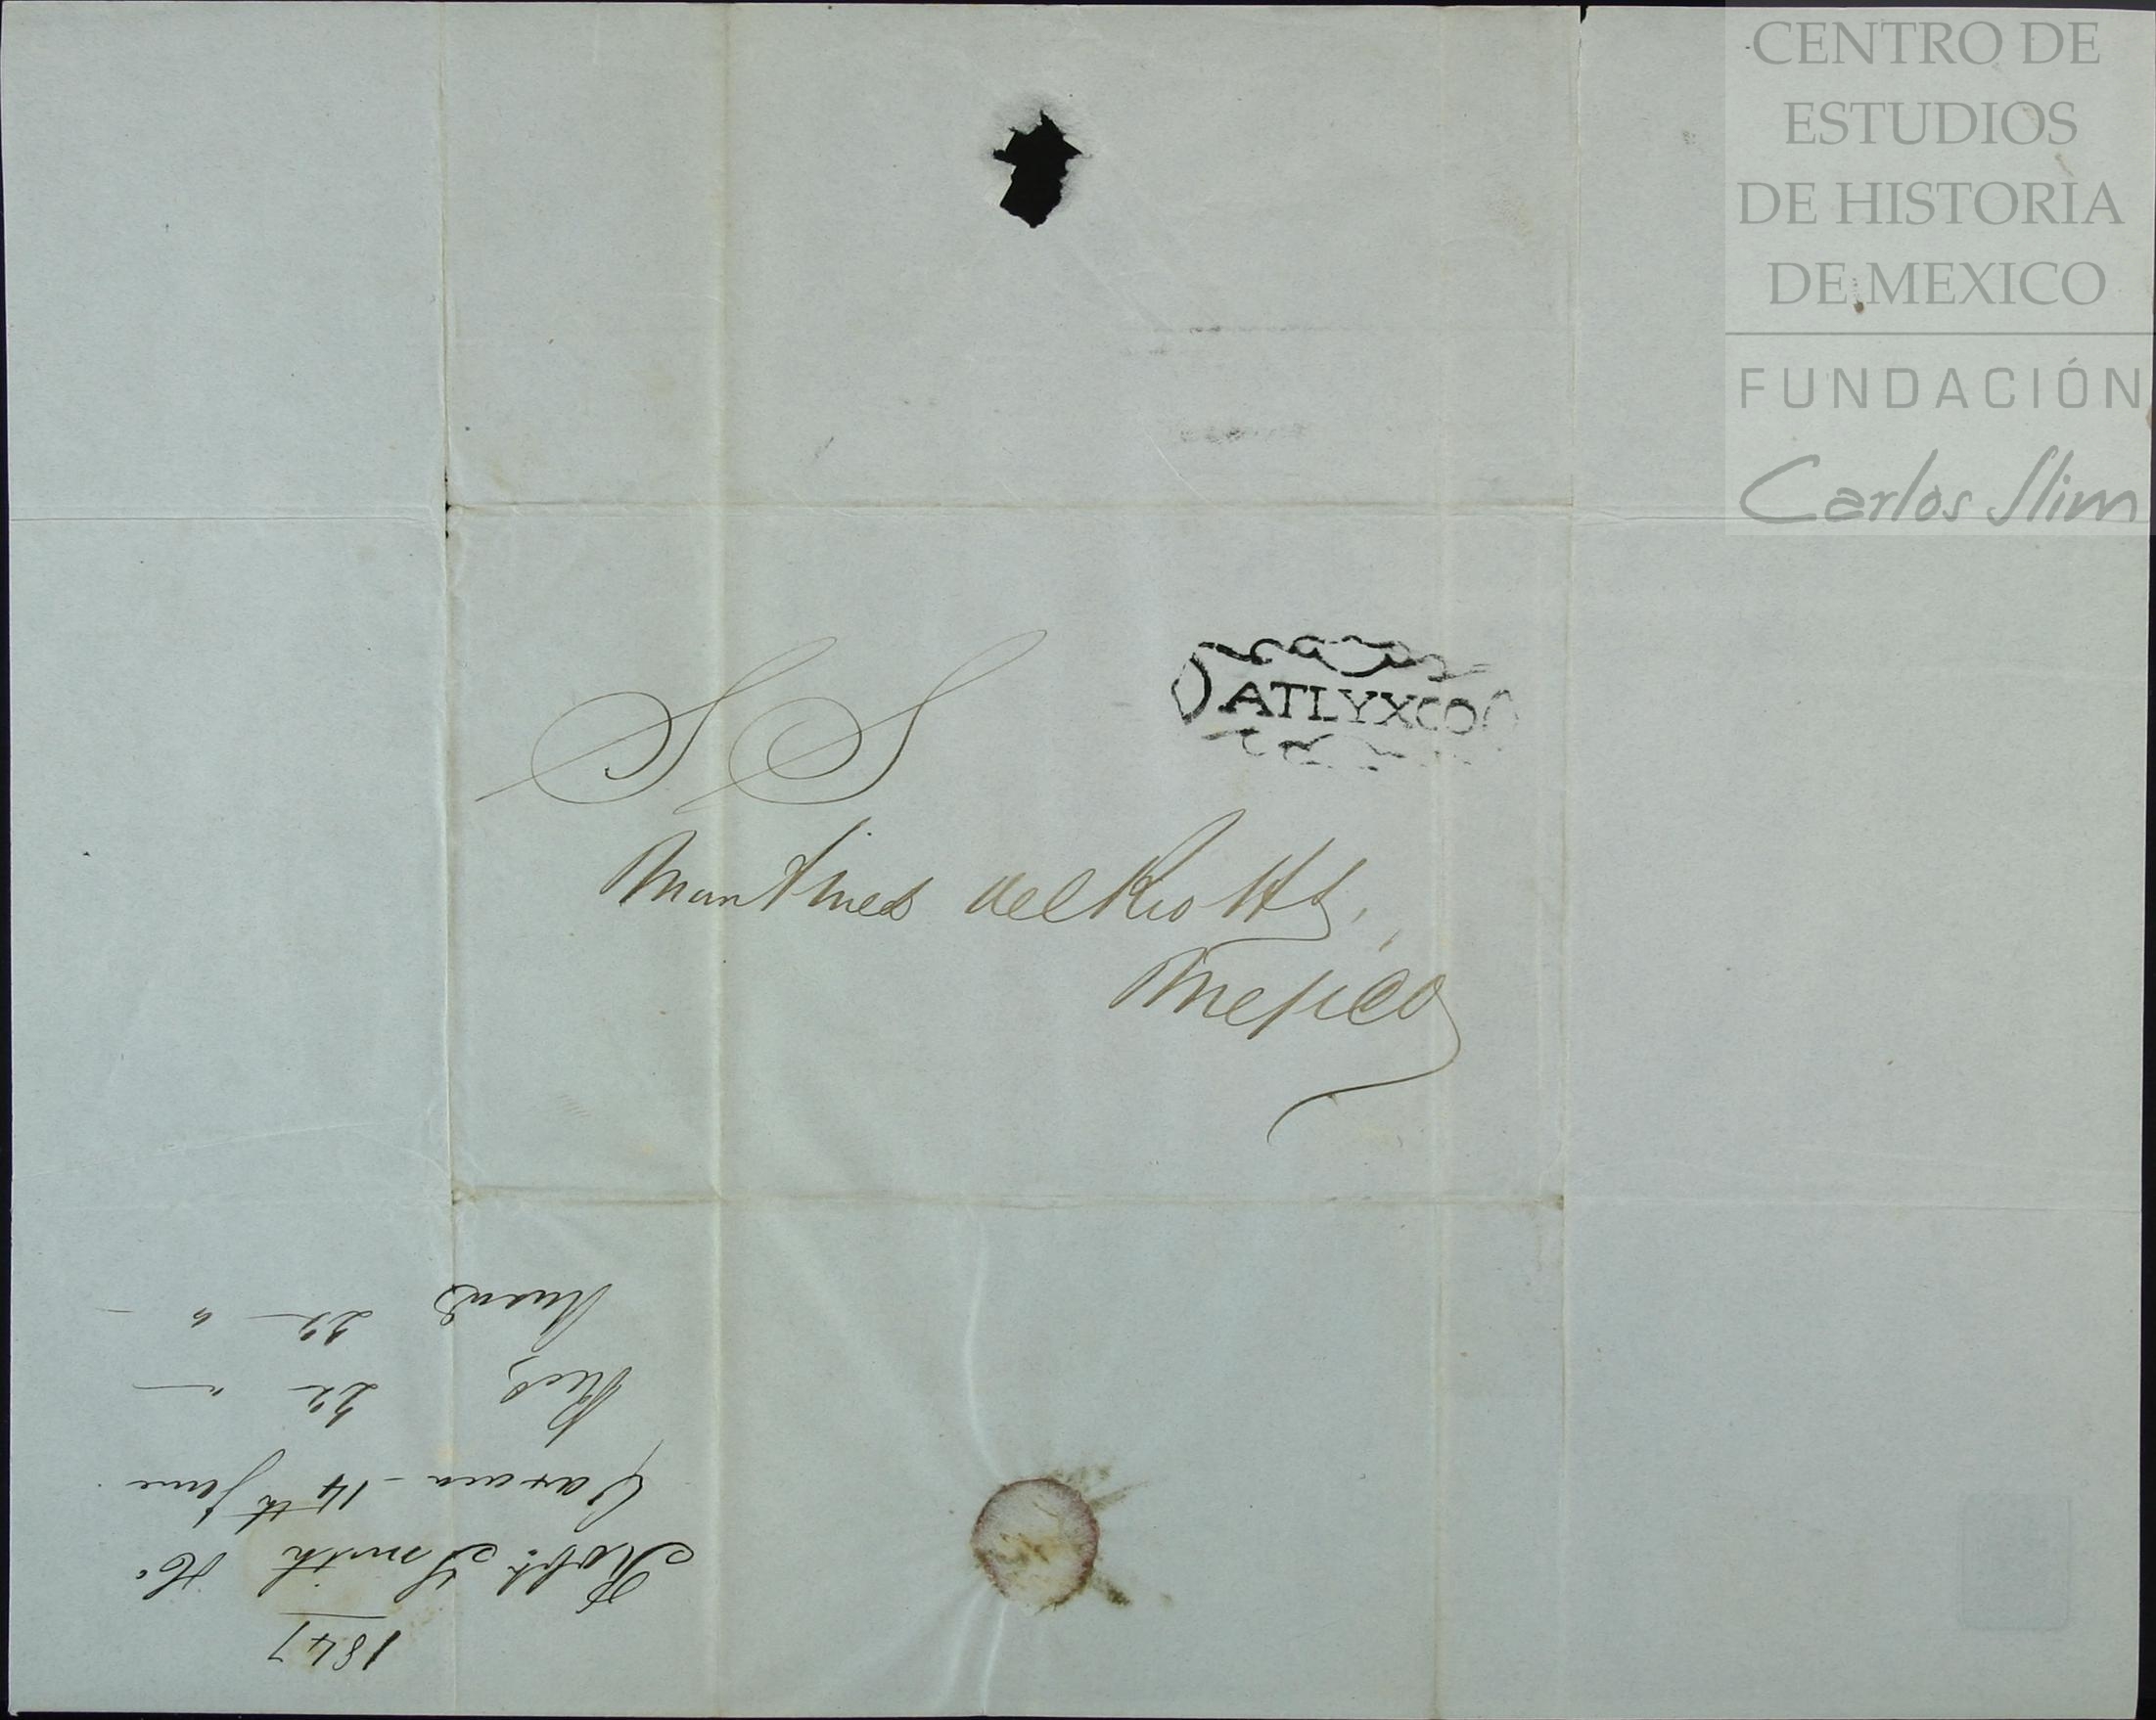 CENTRO DE
ESTUDIOS
DE HISTORIA
DE MEXICO
FUNDACIÓN
Carlos Slim
ATLYXCO
SS
Martinez del Rio Hs,
Mejico
1847
Robt. Smith
Oaxaca - 14th June
Recd, 22 " —
Ansd 23 " —